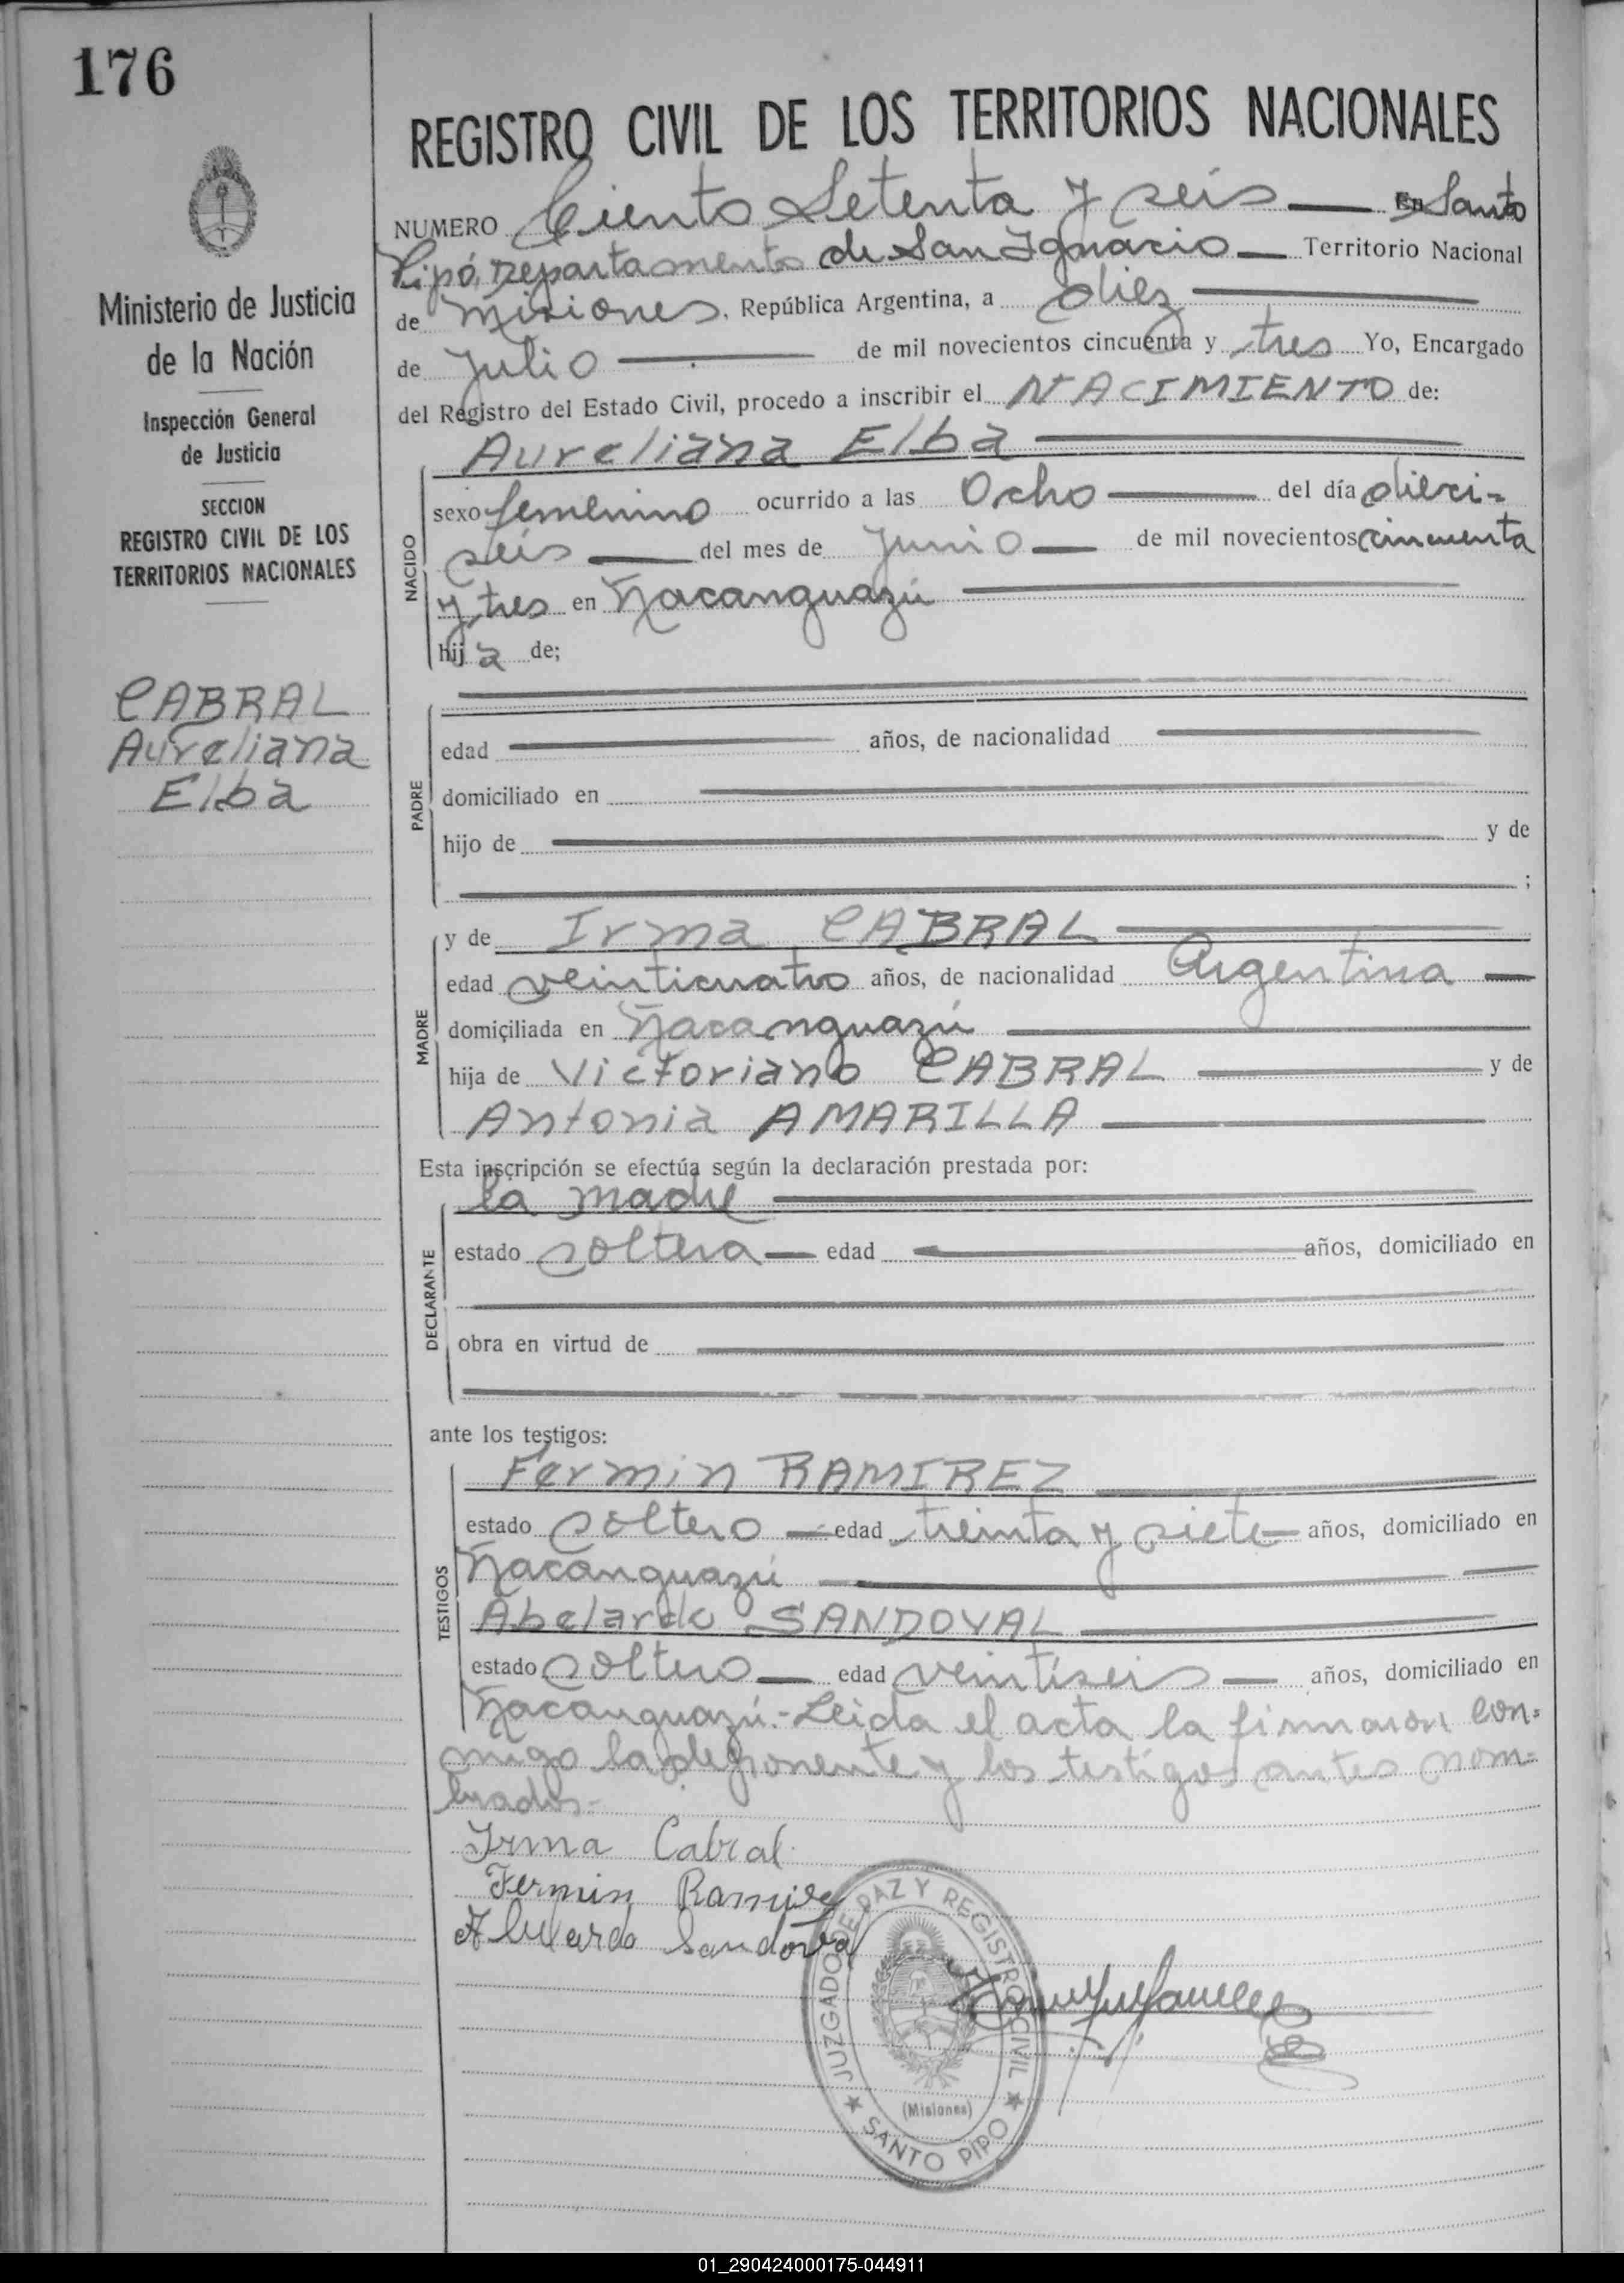 176
Ministerio de Justicia
de la Nación
Inspección General
de Justicia
SECCION
REGISTRO CIVIL DE LOS
TERRITORIOS NACIONALES
CABRAL
Aureliana
Elba
REGISTRO CIVIL DE LOS TERRITORIOS NACIONALES
NUMERO Ciento Setenta y seis En Santo
Pipó, Departamento de San Ignacio Territorio Nacional
de Misiones, República Argentina, a diez
de Julio de mil novecientos cincuenta y tres Yo, Encargado
del Registro del Estado Civil, procedo a inscribir el NACIMIENTO de:
Aureliana Elba
NACIDO
sexo femenino ocurrido a las Ocho del día dieci-
seis del mes de Junio de mil novecientos cincuenta
y tres en Ñacanguazú
hija de;
PADRE
edad años, de nacionalidad
domiciliado en
hijo de y de
;
MADRE
y de Irma CABRAL
edad veinticuatro años, de nacionalidad Argentina
domiciliada en Ñacanguazú
hija de Victoriano CABRAL y de
Antonia AMARILLA
Esta inscripción se efectúa según la declaración prestada por:
la madre
DECLARANTE
estado soltera edad años, domiciliado en
obra en virtud de
ante los testigos:
TESTIGOS
Fermin RAMIREZ
estado soltero edad treinta y siete años, domiciliado en
Ñacanguazú
Abelardo SANDOVAL
estado soltero edad veintiseis años, domiciliado en
Ñacanguazú.- Leida el acta la firmaron con-
migo la deponente y los testigos antes nom-
brados.-
Irma Cabral
Fermin Ramirez
Abelardo Sandoval
JUZGADO DE PAZ Y REGISTRO CIVIL
(Misiones)
SANTO PIPO
01_290424000175-044911